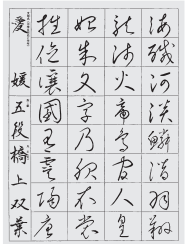 海鹹河淡鱗潛羽翔
龍師火帝鳥官人皇
始制文字乃服衣裳
推位讓國有虞陶唐
愛媛五段橋上双葉